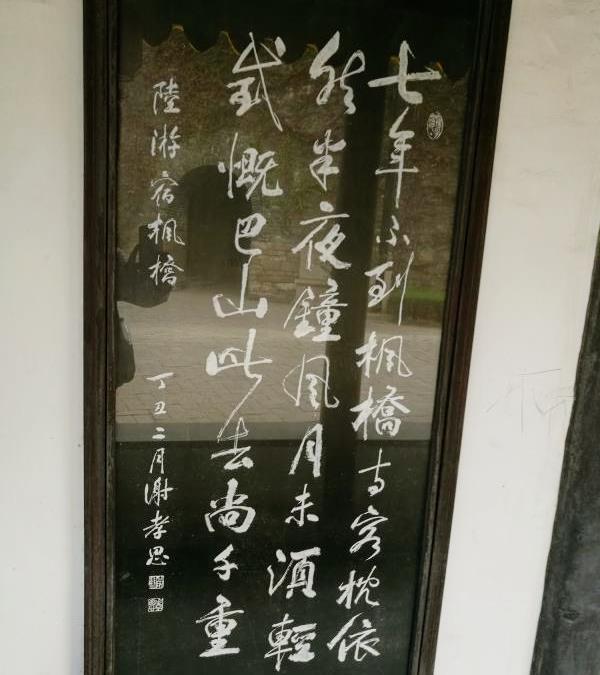 七年不到楓橋寺客枕依
然半夜鐘風月未湏輕
感慨巴山此去尚千重
陸游宿楓橋
丁丑二月謝孝思